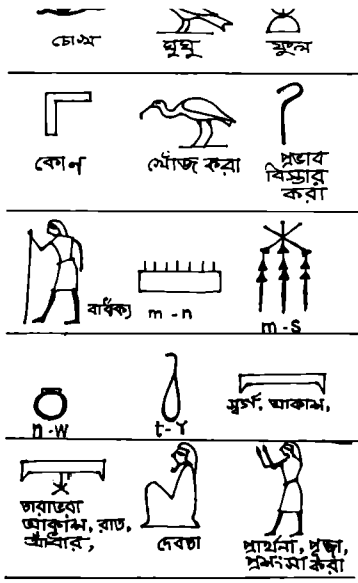 চোখ ঘুঘু ফুল
কোন খোঁজ করা প্রভাব
বিস্তার
করা
বার্ধক্য m-n m-s
n-w t-Y স্বর্গ, আকাশ,
তারাভরা
আকাশ, রাত,
আঁধার,
দেবতা
প্রার্থনা, পূজা,
প্রশংসা করা